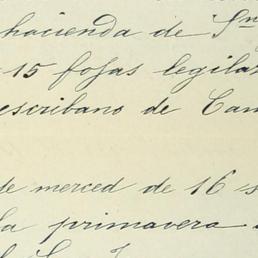 hacienda de Sn
15 fojas legila
escribano de Cam
de merced de 16 s
la primavera